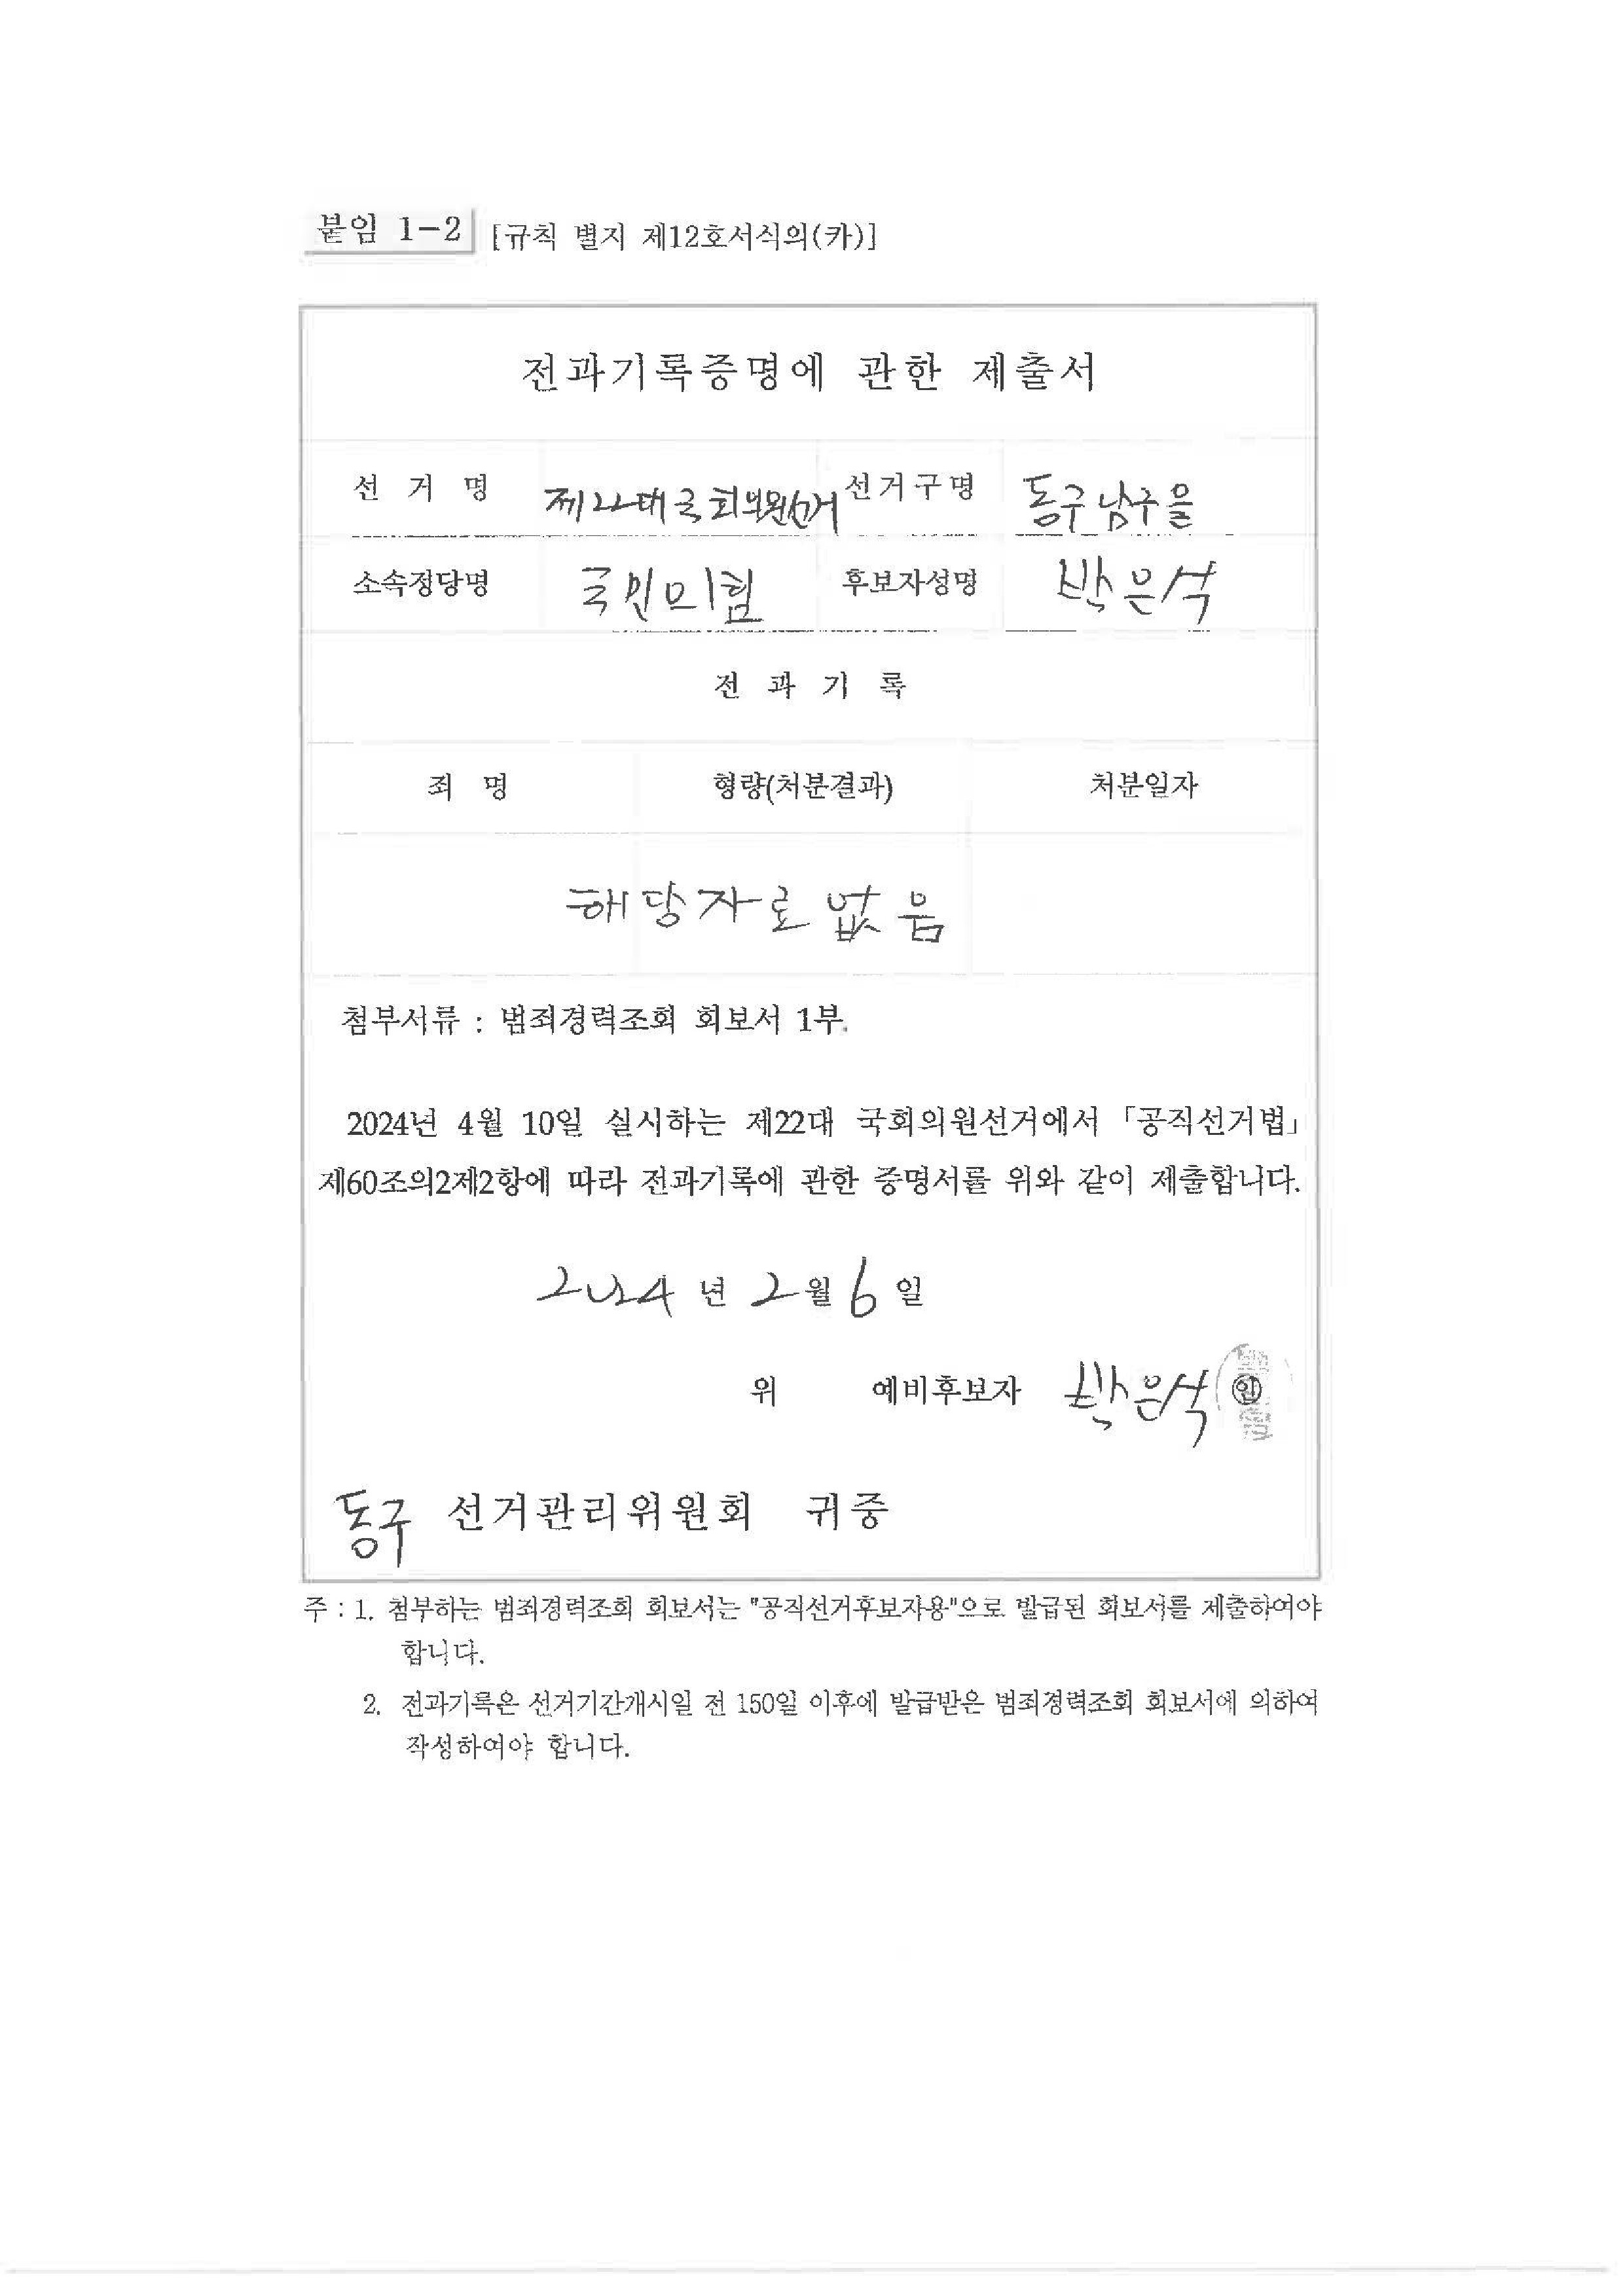 붙임 1-2 [규칙 별지 제12호서식의(카)]
전과기록증명에 관한 제출서
선 거 명 제22대국회의원선거 선거구명 동구남구을
소속정당명 국민의힘 후보자성명 박은석
전 과 기 록
죄 명 형량(처분결과) 처분일자
해당자료 없음
첨부서류 : 범죄경력조회 회보서 1부.
2024년 4월 10일 실시하는 제22대 국회의원선거에서 「공직선거법」
제60조의2제2항에 따라 전과기록에 관한 증명서를 위와 같이 제출합니다.
2024 년 2 월 6 일
위 예비후보자 박은석 ㊞
동구 선거관리위원회 귀중
주 : 1. 첨부하는 범죄경력조회 회보서는 "공직선거후보자용"으로 발급된 회보서를 제출하여야
합니다.
2. 전과기록은 선거기간개시일 전 150일 이후에 발급받은 범죄경력조회 회보서에 의하여
작성하여야 합니다.